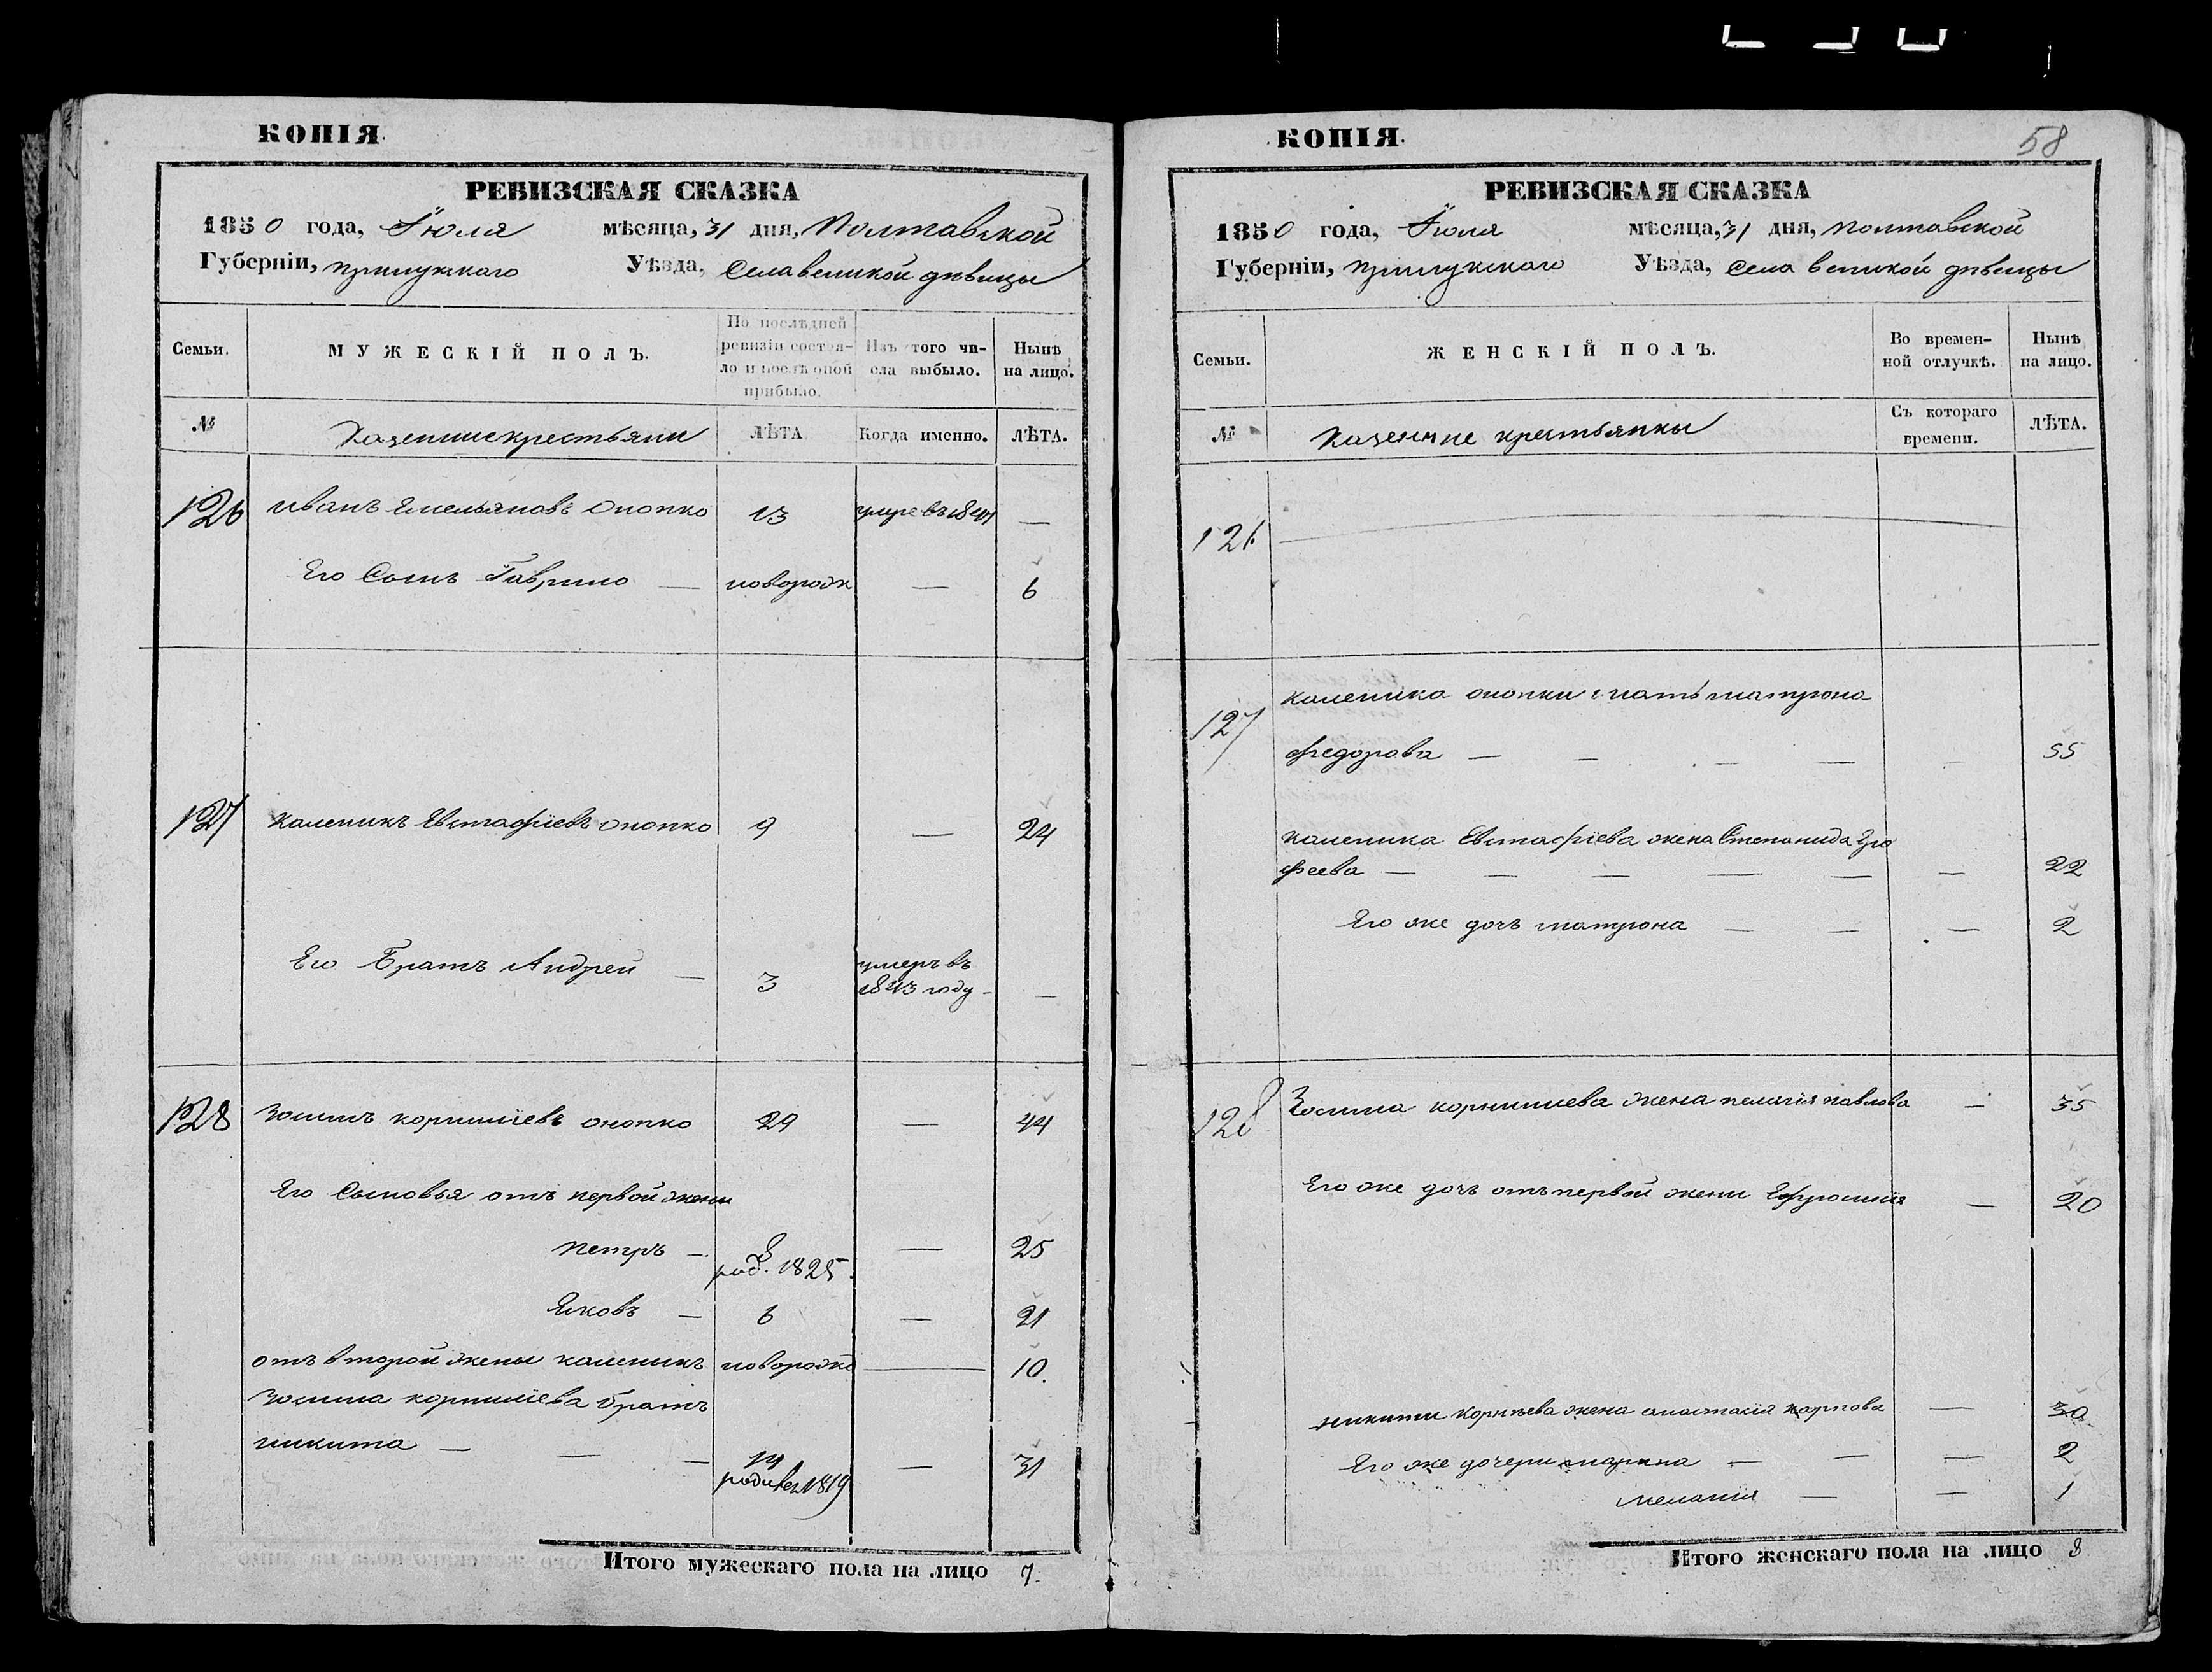 КОПІЯ.
РЕВИЗСКАЯ СКАЗКА
1850 года, Іюля мѣсяца, 31 дня, Полтавской
Губерніи, прилуцкаго Уѣзда, Села великой дѣвицы
Семьи.
МУЖЕСКІЙ ПОЛЪ.
По послѣдней
ревизіи состоя-
ло и послѣ оной
прибыло.
Изъ того чи-
сла выбыло.
Нынѣ
на лицо.
№
Казенние крестьяни
ЛѢТА
Когда именно.
ЛѢТА.
126 иванъ Емельяновъ Онопко 13 —
Его Сынъ Гаврило — новорожд — 6
127 каленикъ Евстафіевъ онопко 9 — 24
Его Братъ Андрей — 3 умеръ въ
1843 году — —
128 Зосимъ корниліевъ онопко 29 — 44
Его Сыновья отъ первой жени
петръ — — 25
род. 1825.
Яковъ — 6 — 21
отъ второй жены каленыкъ новорожд — 10.
Зосима корниліева братъ
никита — — — — 31
родився 1819
Итого мужескаго пола на лицо 7.
КОПІЯ.
58
РЕВИЗСКАЯ СКАЗКА
1850 года, Іюля мѣсяца, 31 дня, полтавской
Губерніи, прилуцкаго Уѣзда, Села великой дѣвицы
Семьи.
ЖЕНСКІЙ ПОЛЪ.
Во времен-
ной отлучкѣ.
Нынѣ
на лицо.
№
Казенние крестьянки
Съ котораго
времени.
ЛѢТА.
126 —
127 каленика онопки мать матрона
федорова — — — — — 55
каленика Евстафіева жена Степанида Еро
феева — — — — — — 22
Его же дочь матрона — — — 2
128 Зосима корниліева жена пелагія павлова — 35
Его же дочъ отъ первой жени Ефросинія — 20
никити корнѣева жена анастасія карпова — 30
Его же дочери марина — — — 2
меланія — — 1
Итого женскаго пола на лицо 8